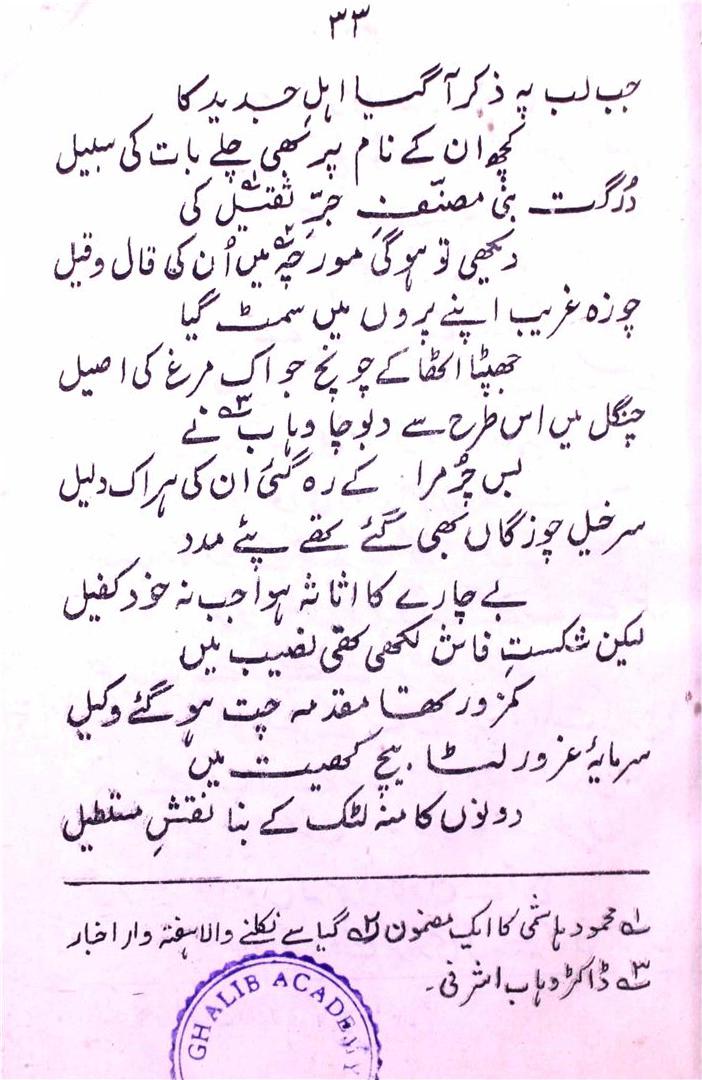 ۳۳
جب لب پہ ذکر آ گیا اہلِ جدید کا
کچھ ان کے نام پر بھی چلے بات کی سبیل
دُرگت بنی مصنّفِ جرِّ ثقیل۱ کی
دیکھی تو ہوگی مورچہ۲ میں اُن کی قال و قیل
چوزہ غریب اپنے پروں میں سمٹ گیا
جھپٹا اٹھا کے چونچ جو اک مرغ کی اصیل
چنگل میں اس طرح سے دبوچا وہاب۳ نے
بس چُرمرا کے رہ گئی ان کی ہر اک دلیل
سرخیلِ چوزگاں بھی گئے تھے پئے مدد
بے چارے کا اثاثہ ہوا جب نہ خود کفیل
لیکن شکستِ فاش لکھی تھی نصیب میں
کمزور تھا مقدمہ چت ہو گئے وکیل
سرمایۂ غرور لٹا بیچ کھیت میں
دونوں کا منہ لٹک کے بنا نقشِ مستطیل
۱ محمود ہاشمی کا ایک مضمون ۲ گیا سے نکلنے والا ہفتہ وار اخبار
۳ ڈاکٹر وہاب اشرفی۔
GHALIB ACADEMY